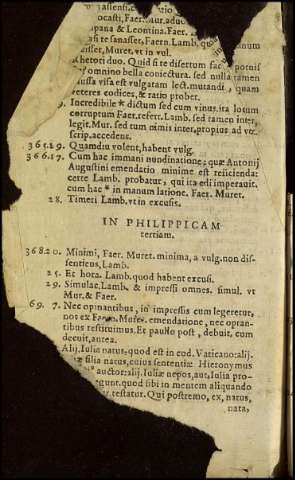 ocasti, Faer. Mur. aduo
pana & Leontina. Faer.
si te sanasset, Faern. Lamb. qua
isset, Muret. vt in vul.
Rhetori duo. Quid si te disertum fac potuis
omnino bella coniectura. sed nulla tamen
iussa visa est vulgatam lect. mutandi, quam
veteres codices, & ratio probet.
9. Incredibile * dictum sed cum vinus. ita locum
corruptum Faer. refert. Lamb. sed tamen inter,
legit. Mur. sed tum nimis inter, propius ad vet.
scrip. accedens.
361.19. Quamdiu volent, habent vulg.
366.17. Cum hac immani nundinatione: quæ Antonij
Augustini emendatio minime est reiicienda:
certe Lamb. probatur, qui ita edi imperauit.
cum hac * in manum latione. Faer. Muret.
28. Timeri Lamb. vt in excusis.
IN PHILIPPICAM
tertiam.
368.20. Minimi, Faer. Muret. minima, a vulg. non dis-
sentiens, Lamb.
25. Et hora. Lamb. quod habent excusi.
29. Simulac, Lamb. & impressi omnes. simul. vt
Mur. & Faer.
69. 7. Nec opinantibus, in impressis cum legeretur,
nos ex Faer. Mures. emendatione, nec opran-
tibus restituimus. Et paullo post, debuit. cum
decuit, antea.
Alij, Iulia natus, quod est in cod. Vaticano: alij.
filia natus, cuius sententiæ Hieronymus
auctor: alij. Iuliæ nepos, aut, Iulia pro-
gunt. quod sibi in mentem aliquando
testatur. Qui postremo, ex, natus,
nata,